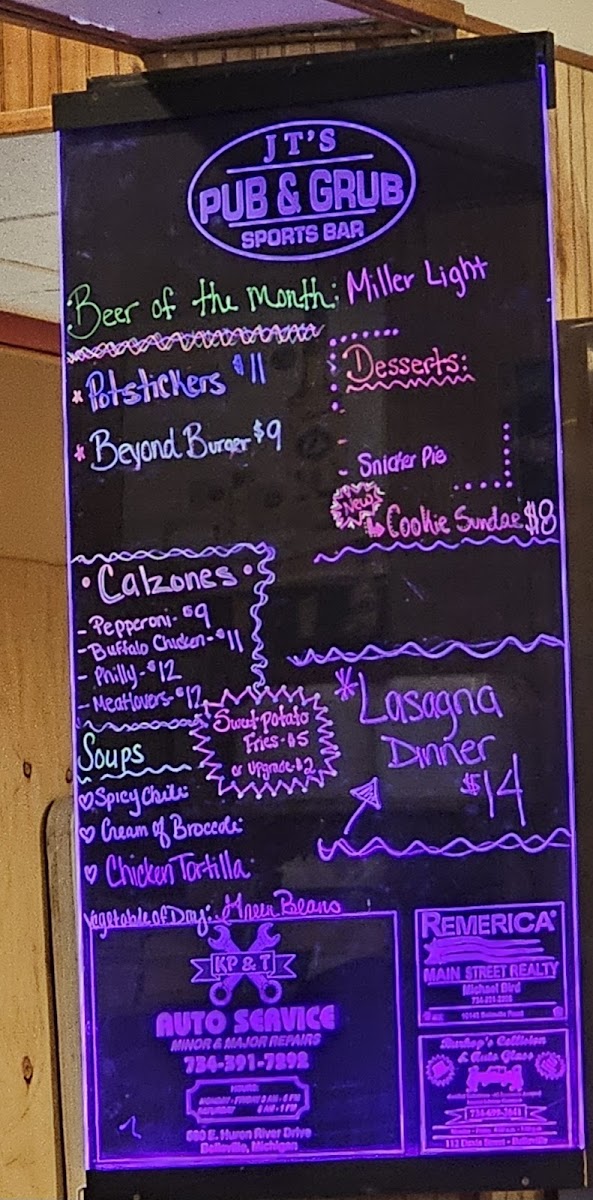 JT'S
PUB & GRUB
SPORTS BAR
Beer of the Month: Miller Light
* Potstickers $11
* Beyond Burger $9
Desserts:
- Snicker Pie
New!
Cookie Sundae $8
• Calzones •
- Pepperoni - $9
- Buffalo Chicken - $11
- Philly - $12
- Meatlovers - $12
Sweet Potato
Fries - $5
or upgrade - $2
* Lasagna
Dinner
$14
Soups
♡ Spicy Chili
♡ Cream of Broccoli
♡ Chicken Tortilla
Vegetable of Day: Green Beans
KP & T
AUTO SERVICE
MINOR & MAJOR REPAIRS
734-391-7892
HOURS:
MONDAY - FRIDAY 8 AM - 6 PM
SATURDAY 8 AM - 1 PM
E. Huron River Drive
Belleville, Michigan
REMERICA
MAIN STREET REALTY
Michael Bird
Collision
& Auto Glass